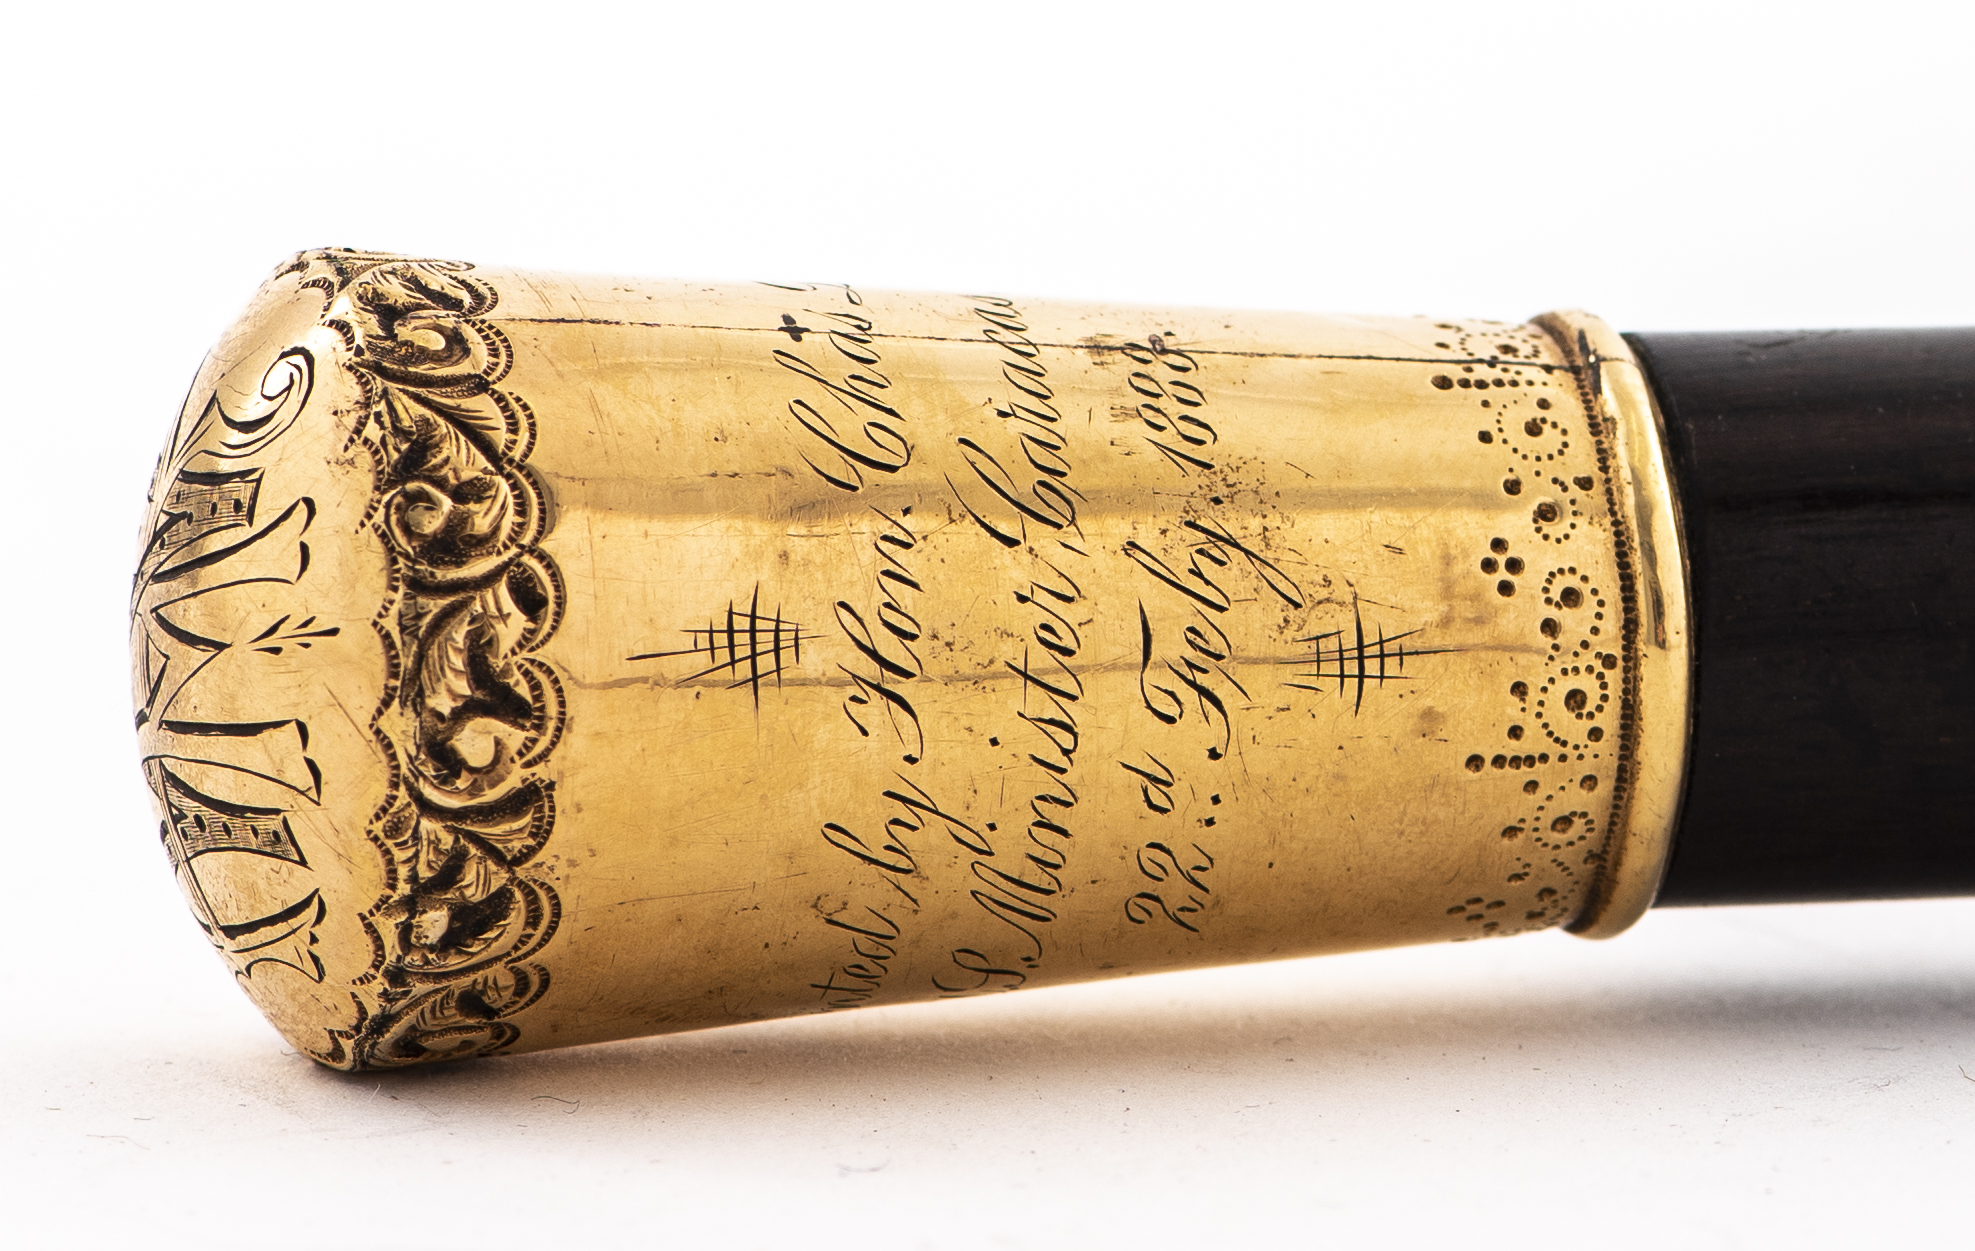 nted by Hon. Chas
S. Minister, Caracas
22d Feby. 1888.